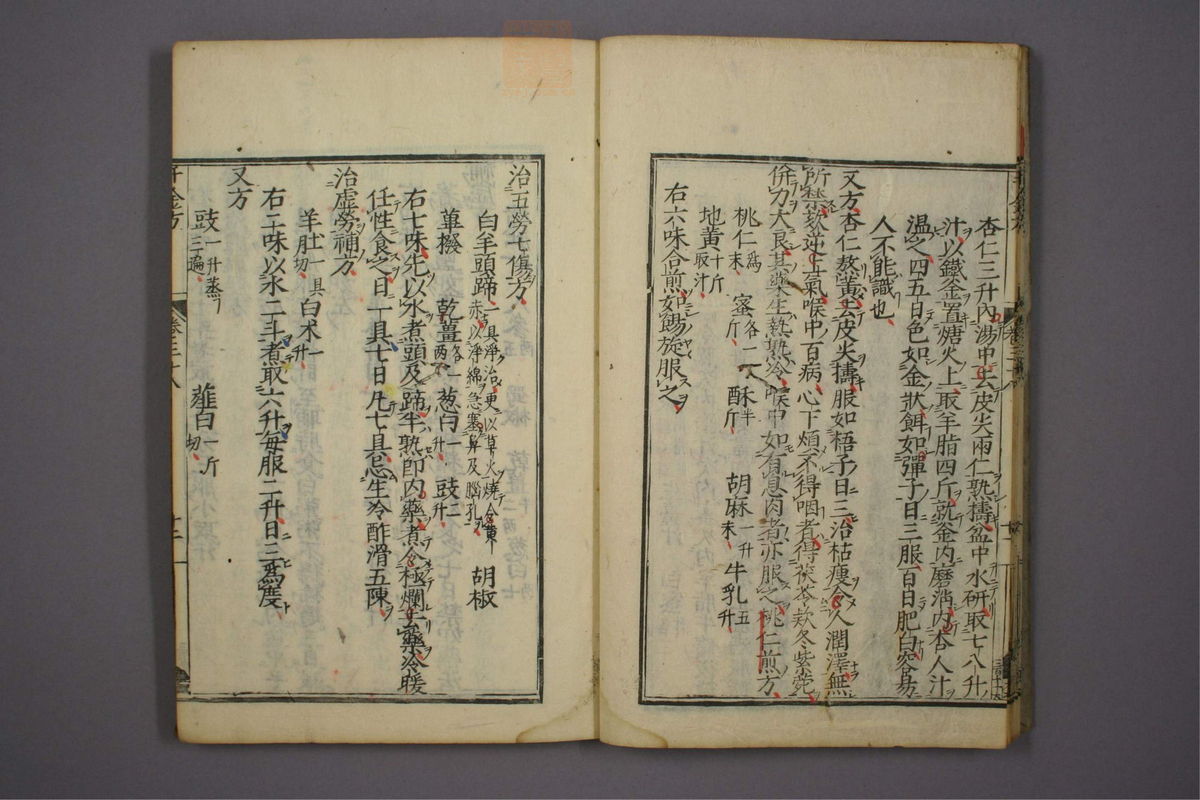 杏仁三升內湯中去皮尖兩仁熟擣盆中水研取七八升
汁以鐵釜置煻火上取羊脂四斤就釜內磨消內杏人汁
温之四五日色如金狀餌如彈子日三服百日肥白容易
人不能識也
又方杏仁熬黃去皮尖擣服如梧子日三治枯瘦令人潤澤無
所禁欬逆上氣喉中百病心下煩不得咽者得茯苓款冬紫菀
併力大良其藥生熟熟冷喉中如有息肉者亦服之桃仁煎方
桃仁為末 蜜各一斤 酥半斤 胡麻一升末 牛乳五升
地黃十斤取汁
右六味合煎如餳旋服之
治五勞七傷方
白羊頭蹄一具淨治更以草火燒令黃赤以淨綿急塞鼻及腦孔 胡椒
蓽撥 乾薑各一兩 葱白一升 豉二升
右七味先以水煮頭及蹄半熟即內藥煮令極爛去藥冷暖
任性食之日一具七日凡七具忌生冷酢滑五陳
治虛勞補方
羊肚一具切 白朮一升
右二味以水二斗煮取六升每服二升日三為度
又方
豉一升蒸三遍 薤白一斤切
千金方
卷二十八
十二